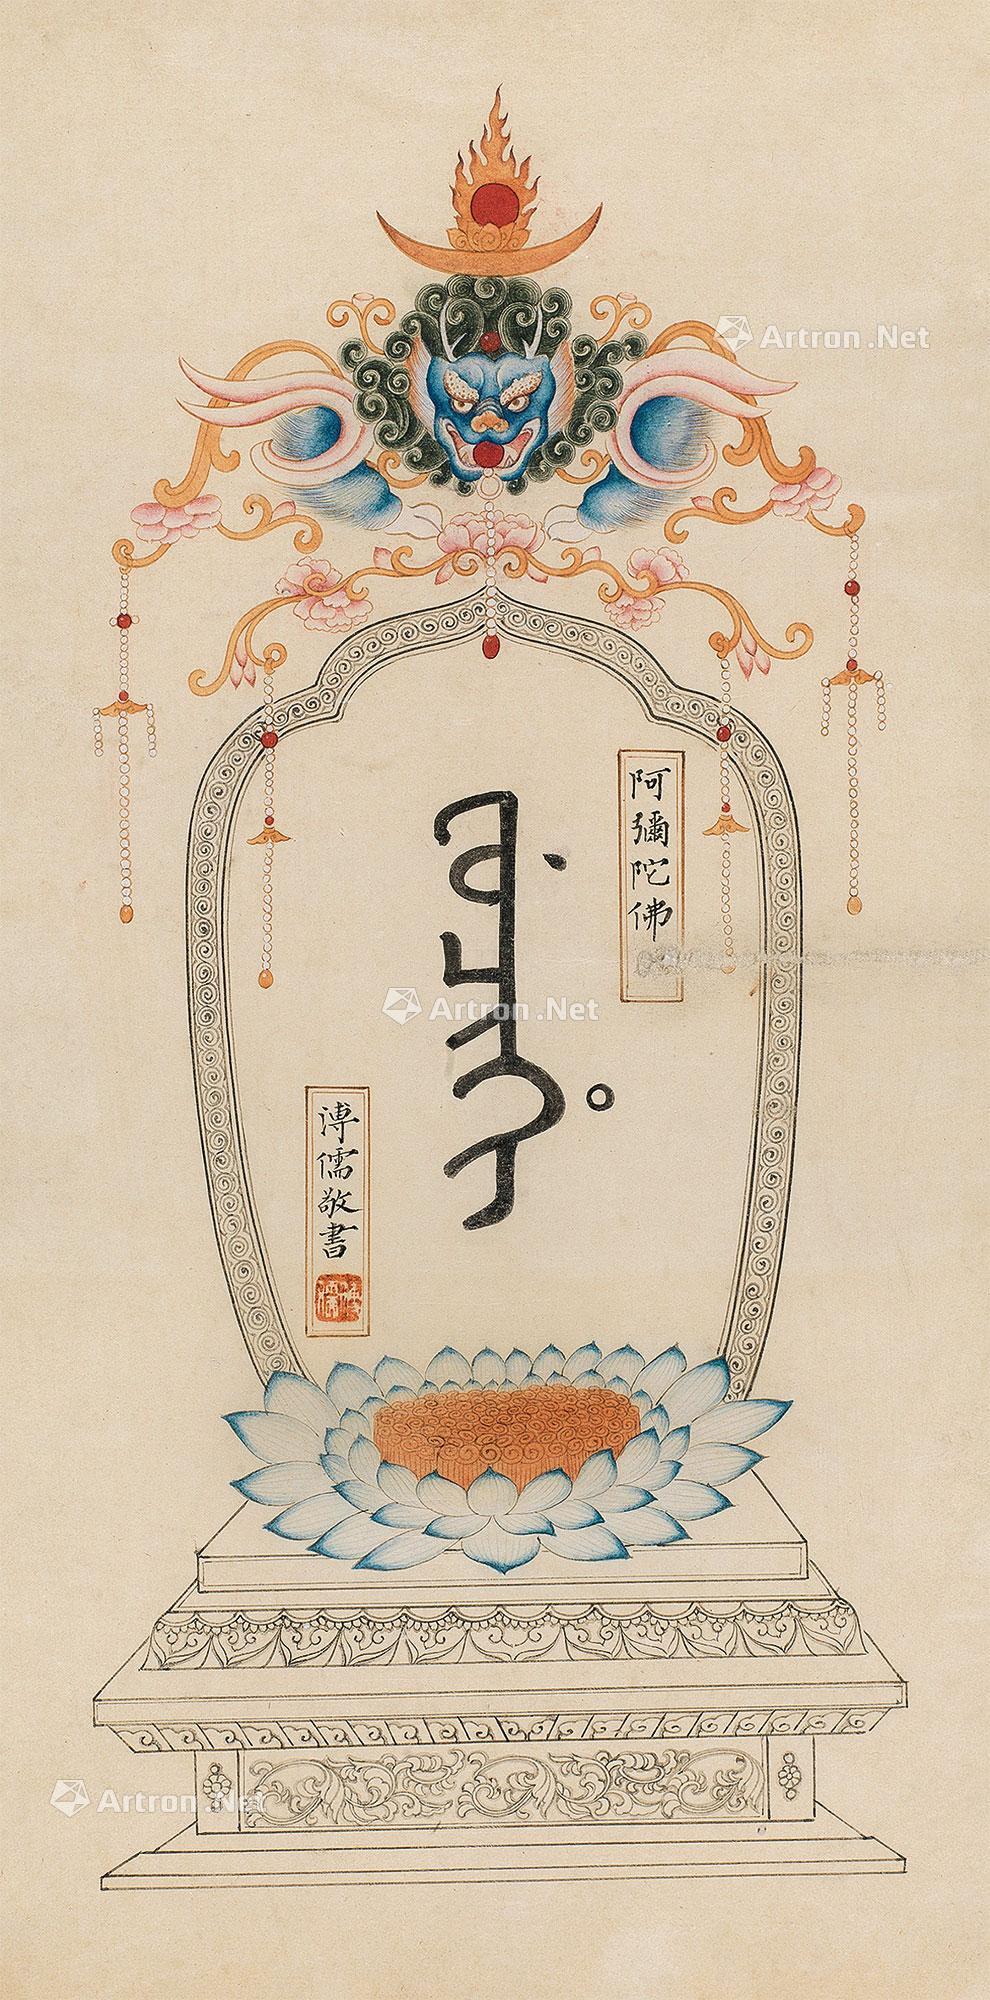 Artron.Net
阿彌陀佛
ᡶᡠᠴᡳᡥᡳ
Artron.Net
溥儒敬書
溥儒
Artron.Net